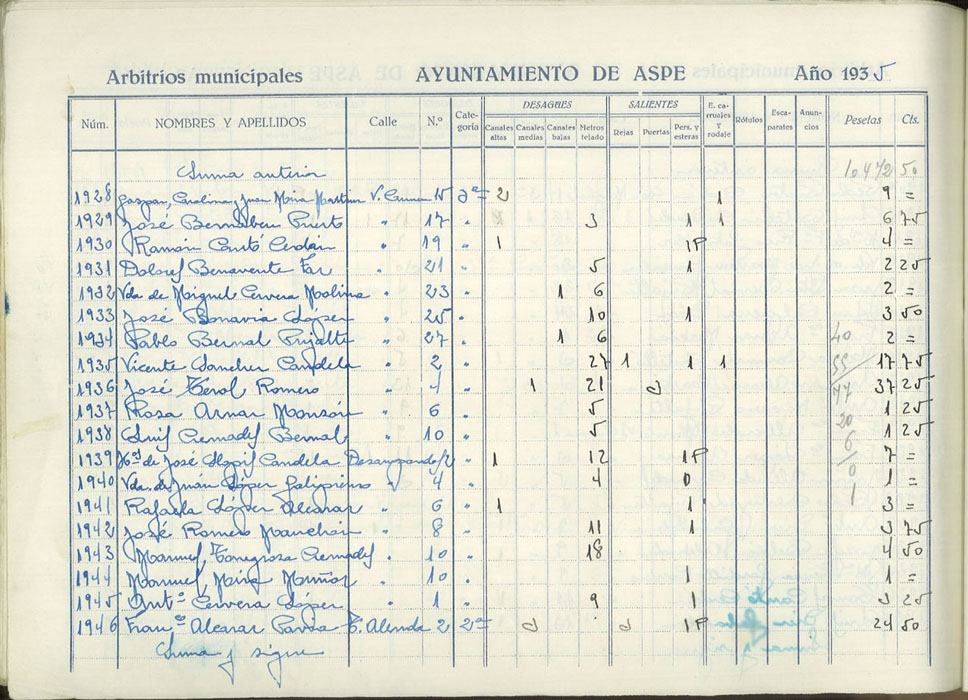 Arbitrios municipales AYUNTAMIENTO DE ASPE Año 1935
Núm. NOMBRES Y APELLIDOS Calle N.º Categoría DESAGUES Canales altas Canales medias Canales bajas Metros tejado SALIENTES Rejas Puertas Pers. y esteras E. carruajes y rodaje Rótulos Escaparates Anuncios Pesetas Cts.
Suma anterior 10.472 50
1928 Gaspar, Carolina, Juan Mira V. Carmen 15 3ª 2 1 9 =
1929 José Bernabeu Puerto " 17 " 3 1 1 6 75
1930 Ramón Cantó Cerdán " 19 " 1 1P 4 =
1931 Dolores Benavente Far " 21 " 5 1 2 25
1932 Vda de Miguel Cervera Molina " 23 " 1 6 2 =
1933 José Bonavia López " 25 " 10 1 3 50
1934 Pablo Bernal " 27 " 1 6 2 =
1935 Vicente Sanchez Candela " 2 " 27 1 1 1 17 75
1936 José Terol Romero " 4 " 1 21 2 37 25
1937 Rosa Aznar Monzón " 6 " 5 1 25
1938 Luis Cremades Bernal " 10 " 5 1 25
1939 de José Candela Desamparado 2 " 1 12 1P 7 =
1940 Vda. de Juán López Galipienso " 4 " 4 0 1 =
1941 Rafaela López Alcaraz " 6 " 1 1 3 =
1942 José Romero Manchón " 8 " 11 1 3 75
1943 Manuel Torregrosa Cremades " 10 " 18 4 50
1944 Manuel Mira Muñoz " 10 " 1 1 =
1945 Antº Cervera López " 1 " 9 1 3 25
1946 Francº Alcaraz Pavía Alenda 2 2ª 2 2 1P 24 50
Suma y sigue